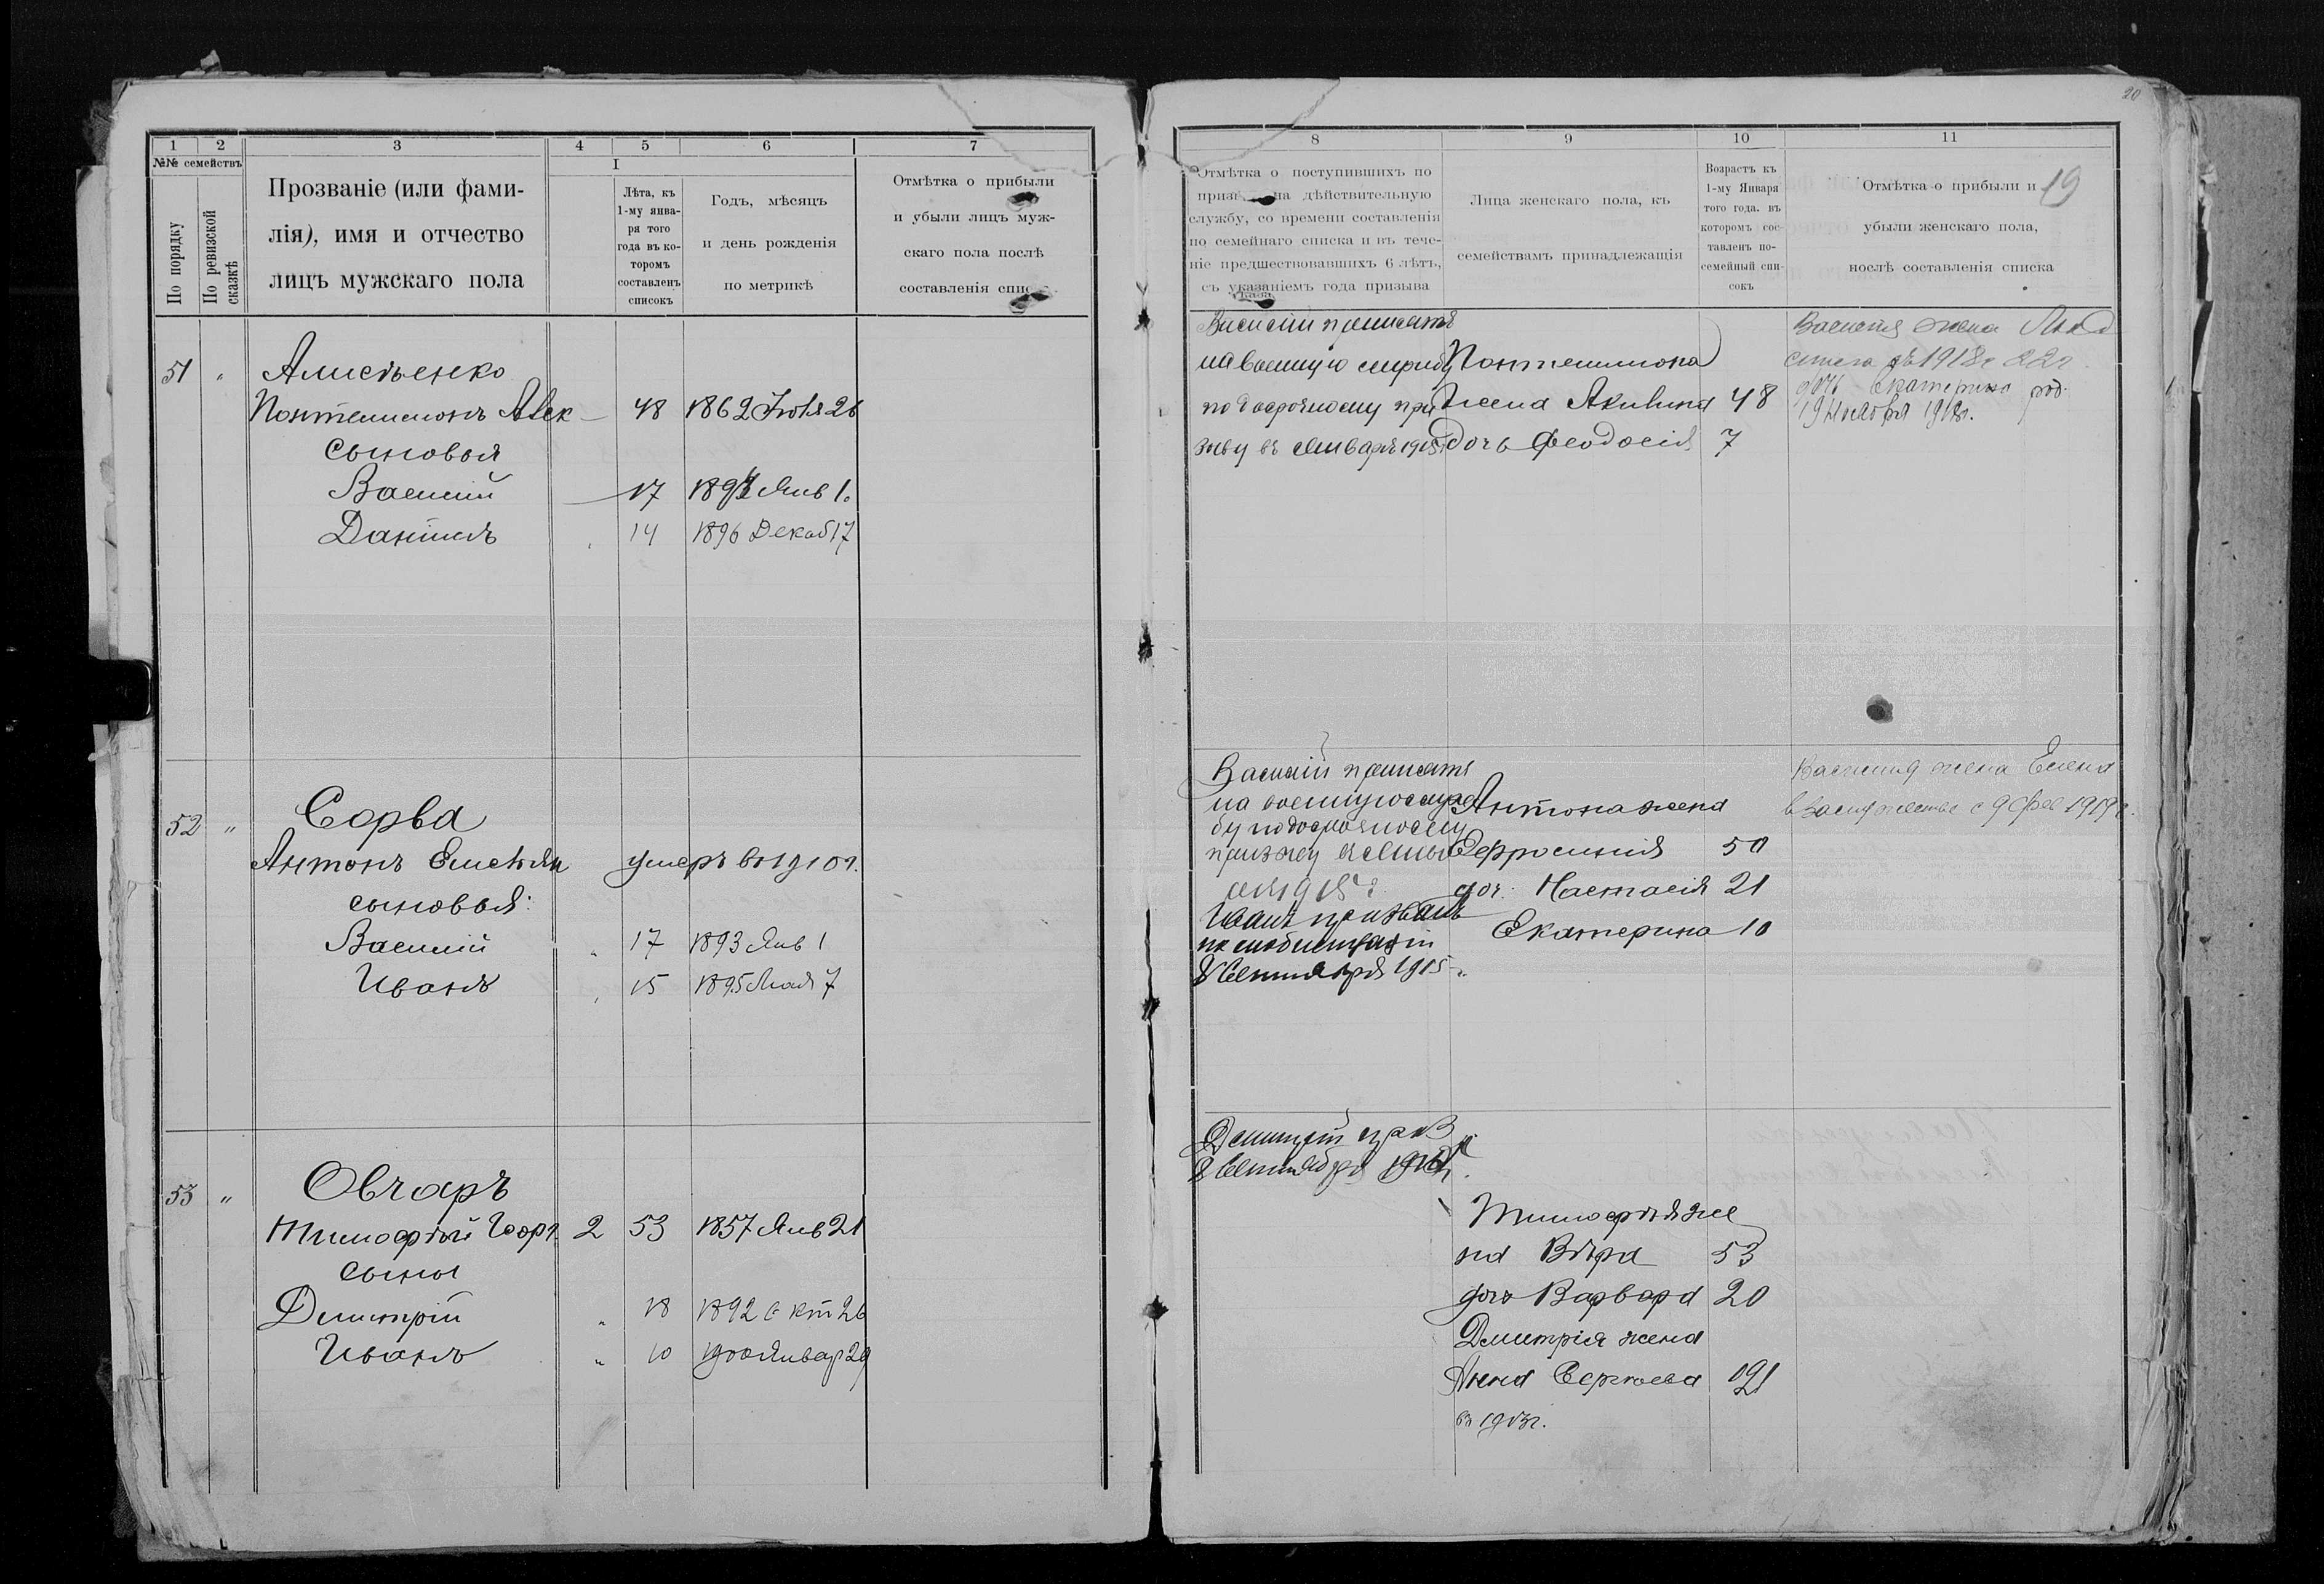 20
19
1 2 3 4 5 6 7
№№ семействъ
По порядку
По ревизской сказкѣ
Прозваніе (или фами-
лія), имя и отчество
лицъ мужскаго пола
I
Лѣта, къ
1-му янва-
ря того
года въ ко-
торомъ
составленъ
списокъ
Годъ, мѣсяцъ
и день рожденія
по метрикѣ
Отмѣтка о прибыли
и убыли лицъ муж-
скаго пола послѣ
составленія
51 " 
Пантелимонъ Алек 48 1862 Іюля 26
сыновья
Василій 17 Янв 1.
Даніилъ 14 1896 Декаб 17
52 " Сорва
Антонъ Емельян умеръ въ 1910 г.
сыновья:
Василій " 17 1893 Янв 1
Иванъ " 15 1895 Мая 7
53 " Овчаръ
Тимофѣй Георг 2 53 1857 Янв 21
сыны
Дмитрій " 18 1892 Окт 26
Иванъ " 10 1900 Январ 29
8 9 10 11
Отмѣтка о поступившихъ по
на дѣйствительную
службу, со времени составленія
по семейнаго списка и въ тече-
ніе предшествовавшихъ 6 лѣтъ,
съ указаніемъ года призыва
Лица женскаго пола, къ
семействамъ принадлежащія
Возрастъ къ
1-му Января
того года. въ
которомъ сос-
тавленъ по-
семейный спи-
сокъ
Отмѣтка о прибыли и
убыли женскаго пола,
послѣ составленія списка
Василій принятъ
на военную службу
по досрочному при
зыву въ Январѣ 1915
Пантелимона
жена Акилина 48
дочь Феодосія 7
Василія жена
съ 1918 г 22 г
дочь Екатерина род.
19 Ноября 1918 г.
Василій принятъ
на военную служ
бу по досрочному
призыву
Иванъ призванъ
по мобилизаціи
8 Сентября 1915 г.
Антона жена
Ефросинія 50
доч. Настасія 21
Екатерина 10
Василія жена Елена
въ замужествѣ с 9 фев 1919 г.
Дмитрій
Сентября
Тимофѣя же
на Вѣра 53
дочь Варвара 20
Дмитрія жена
Анна Сергѣева
въ 1913 г.